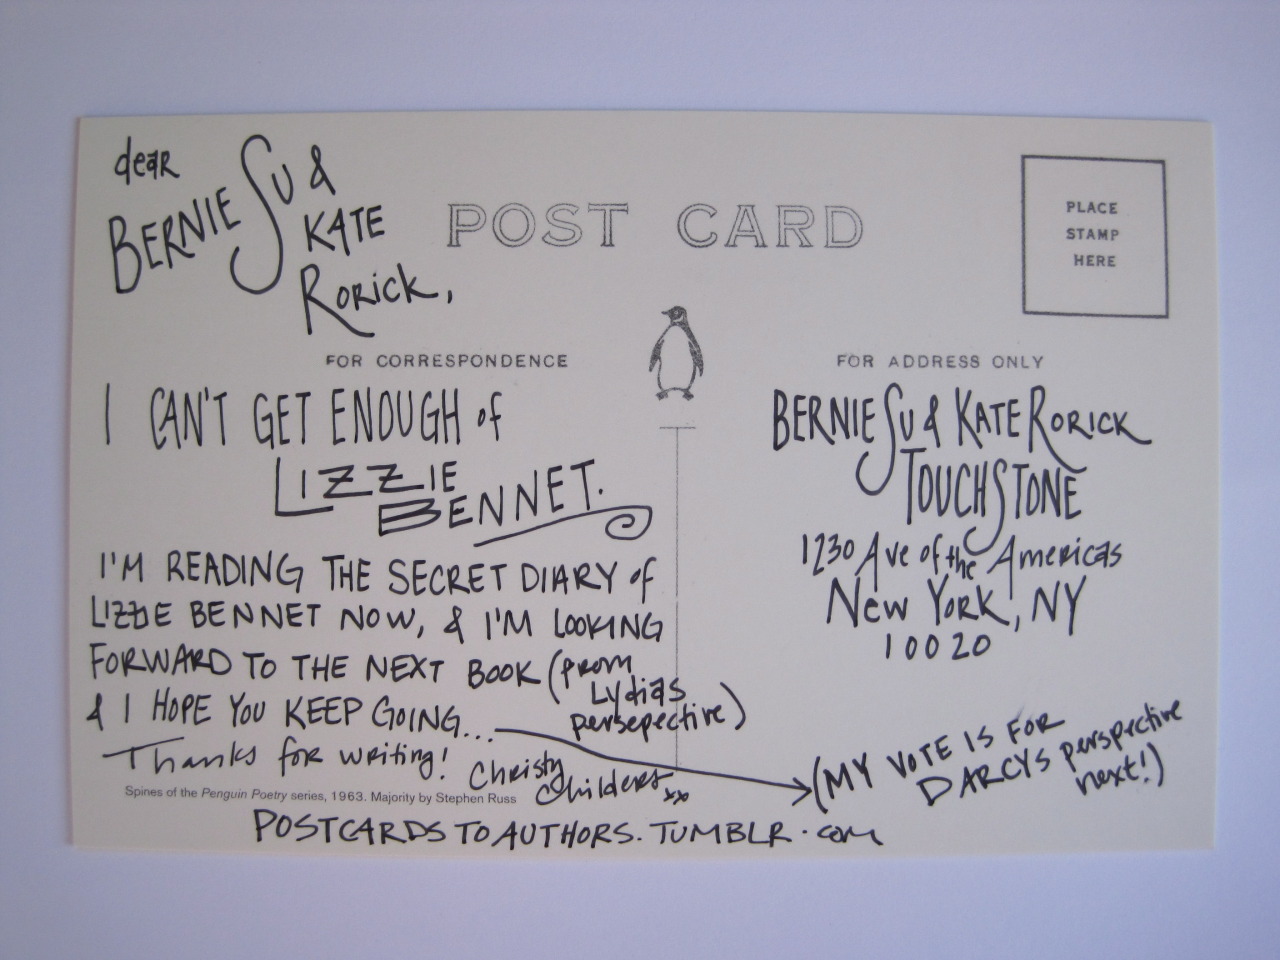 dear
BERNIE SU &
KATE
RORICK,
POST CARD
PLACE
STAMP
HERE
FOR CORRESPONDENCE
FOR ADDRESS ONLY
I CAN'T GET ENOUGH of
LIZZIE
BENNET.
I'M READING THE SECRET DIARY of
LIZZIE BENNET NOW, & I'M LOOKING
FORWARD TO THE NEXT BOOK (from
Lydias
persepective)
& I HOPE YOU KEEP GOING...
(MY VOTE IS FOR
DARCYS perspective
next!)
Thanks for writing!
Christy
Childers xx
Spines of the Penguin Poetry series, 1963. Majority by Stephen Russ
POSTCARDS TO AUTHORS. TUMBLR.com
BERNIE SU & KATE RORICK
TOUCHSTONE
1230 Ave of the Americas
New York, NY
10020